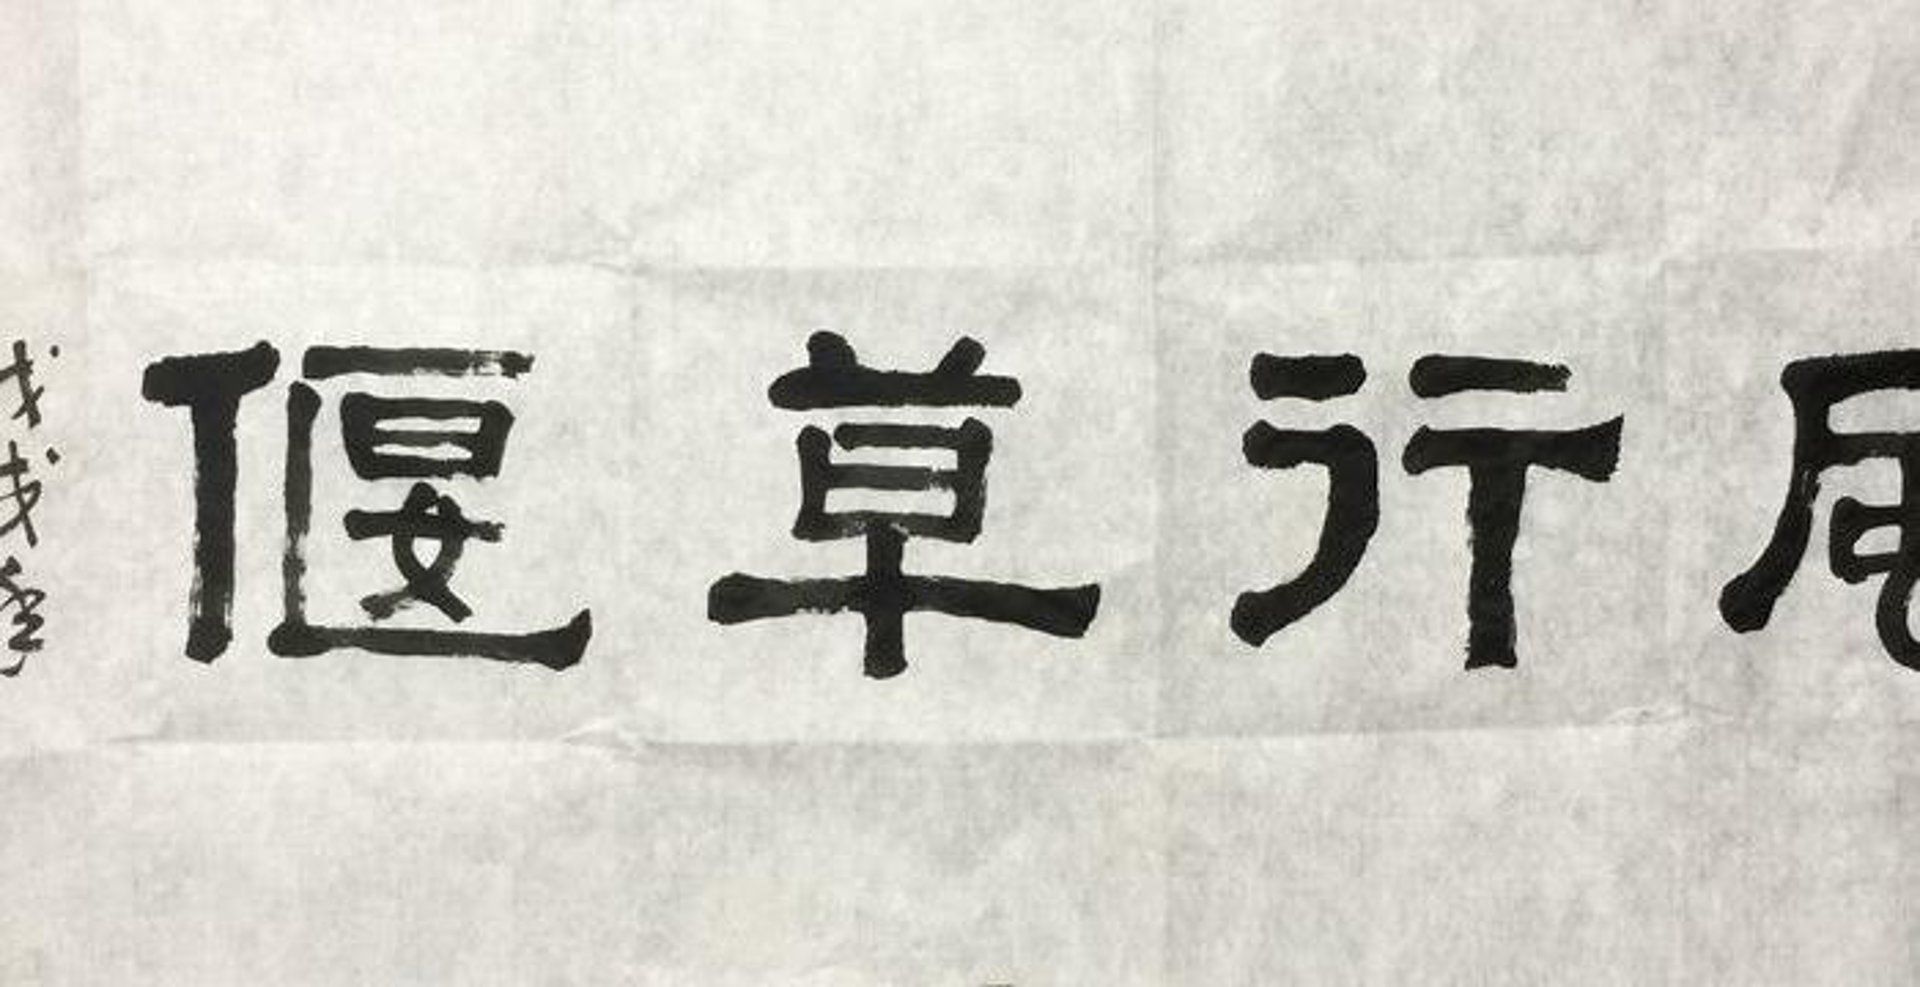 風行草偃
戊戌